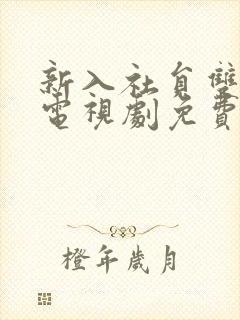 新入社員雙
電視劇免費
橙年歲月